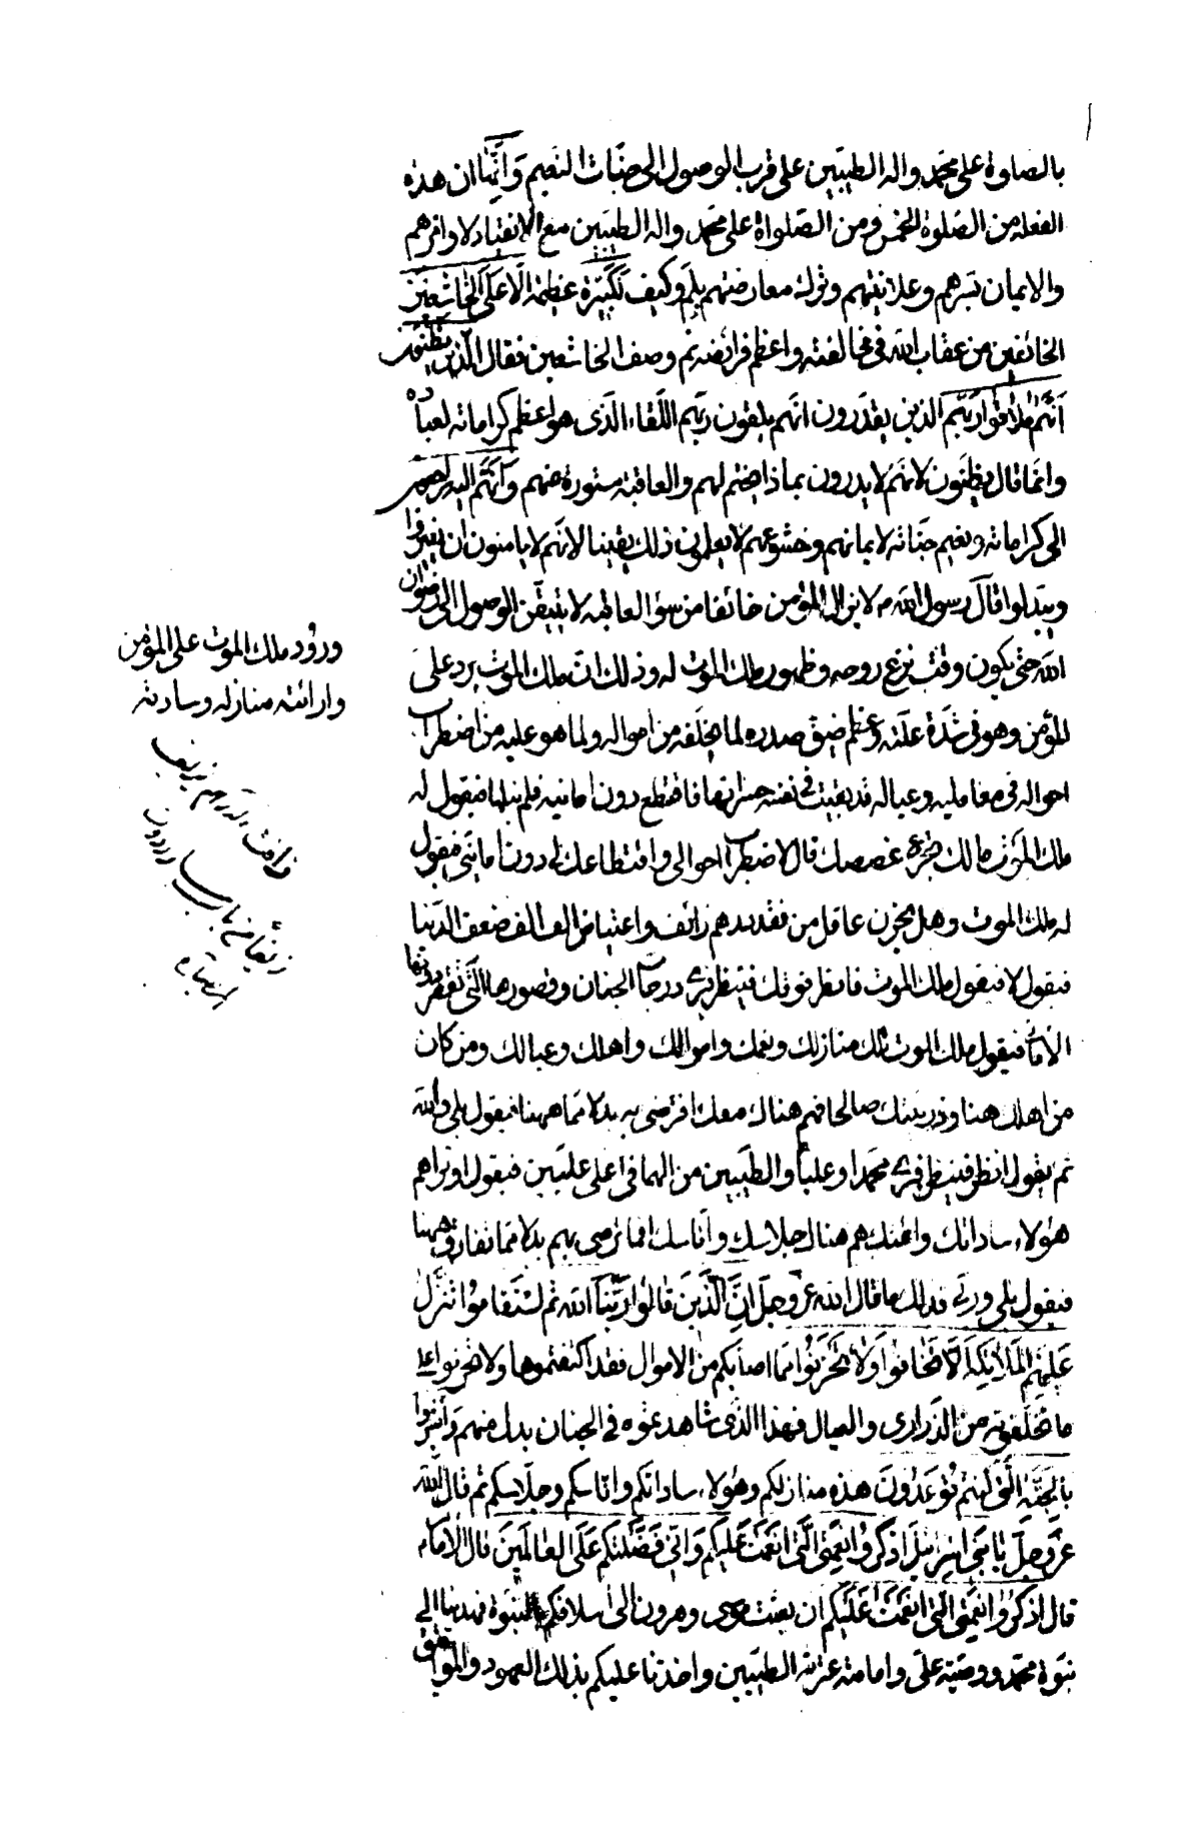 بالصلوة على محمد واله الطيبين على قرب الوصول الى جنات النعيم وَاِنَّها ان هذه
الفعلة من الصلوة الخمس ومن الصلواة على محمد واله الطيبين مع الانقياد لاوامرهم
والايمان بسرهم وعلانيتهم وترك معارضتهم بلم وكيف لَكَبيرَة عظيمة اِلّا عَلَى الْخاشِعينَ
الخائفين من عقاب الله فى مخالفته واعظم فرائضه ثم وصف الخاشعين فقال الّذين يظنّون
اَنَّهُمْ مُلاقُوا رَبِّهِمْ الذين يقدرون انهم يلقون ربهم اللقاء الذى هو اعظم كراماته لعباده
وانما قال يظنون لانهم لا يدرون بماذا يختم لهم والعاقبة مستورة عنهم وَاَنَّهُمْ اليه راجعون
الى كراماته ونعيم جناته لايمانهم وخشوعهم لا يعلمون ذلك يقينا لانهم لا يامنون ان يغيروا
ويبدلوا قال رسول الله م لا يزال المؤمن خائفا من سوء العاقبه لا يتيقن الوصول الى رضوان
الله حتى يكون وقت نزع روحه وظهور ملك الموت له وذلك ان ملك الموت يرد على
المؤمن وهو فى شدة علته وعظم ضيق صدره لما يخلفه من امواله ولما هو عليه من اضطراب
احواله فى معامليه وعياله قد بقيت فى نفسه حسراتها فاقتطع دون امانيه فلم ينلها فيقول له
ملك الموت مالك تجرع غصصك قال لاضطراب احوالى واقتطاعك لى دون امانيى فيقول
له ملك الموت وهل يحزن عاقل من فقد درهم زائف واعتياض الف الف ضعف الدنيا
فيقول لا فيقول ملك الموت فانظر فوقك فينظر فيرى درجات الجنان وقصورها التى تقصر دونها
الامانى فيقول ملك الموت تلك منازلك ونعمك واموالك واهلك وعيالك ومن كان
من اهلك هنا وذريتك صالحا فهم هناك معك افترضى به بدلا مما ههنا فيقول بلى والله
ثم يقول انظر فينظر فيرى محمدا وعليا والطيبين من الهما فى اعلى عليين فيقول اوتراهم
هؤلاء ساداتك وائمتك هم هناك جلاسك وآناسك افما ترضى بهم بدلا مما تفارق ههنا
فيقول بلى وربى فذلك ما قال الله عز وجل اِنَّ الَّذينَ قالُوا رَبُّنَا اللّهُ ثُمَّ اسْتَقامُوا تَتَنَزَّلُ
عَلَيْهِمُ الْمَلائِكَةُ اَلّا تَخافُوا وَلا تَحْزَنُوا مما اصابكم من الاموال فقد اكتفيتموها ولا تحزنوا على
ما تخلفونه من الذرارى والعيال فهذا الذى شاهدتموه فى الجنان بدل منهم وَاَبْشِرُوا
بِالْجَنَّةِ الَّتى كُنْتُمْ تُوعَدُونَ هذه منازلكم وهؤلاء ساداتكم واناسكم وجلاسكم ثم قال الله
عز وجل يا بَنى اِسْرائيلَ اذْكُرُوا نِعْمَتِىَ الَّتى اَنْعَمْتُ عَلَيْكُمْ وَاَنّى فَضَّلْتُكُمْ عَلَى الْعالَمينَ قال الامام
قال اذْكُرُوا نِعْمَتِىَ الَّتى اَنْعَمْتُ عَلَيْكُمْ ان بعثت موسى وهرون الى اسلافكم بالنبوة فهديناهم الى
نبوة محمد ووصية على وامامة عترته الطيبين واخذنا عليكم بذلك العهود والمواثيق
ورود ملك الموت على المؤمن
وارائته منازله وساداته